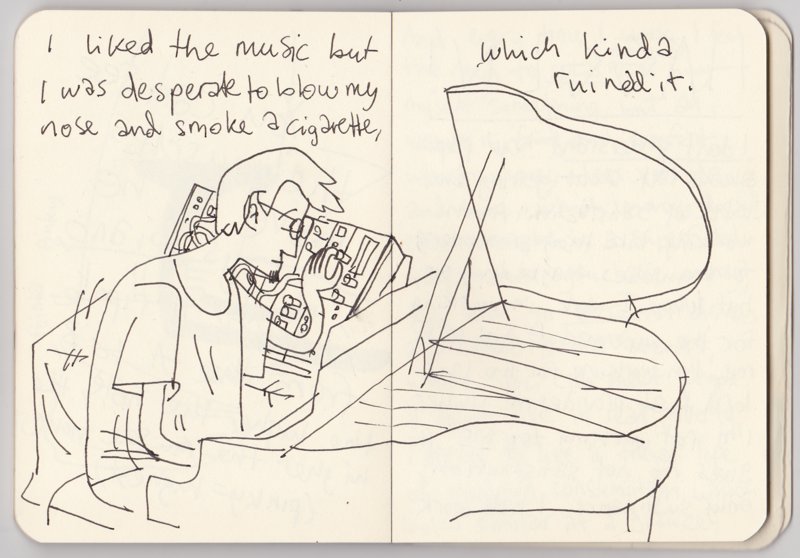 I liked the music but
I was desperate to blow my
nose and smoke a cigarette,
which kinda
ruined it.